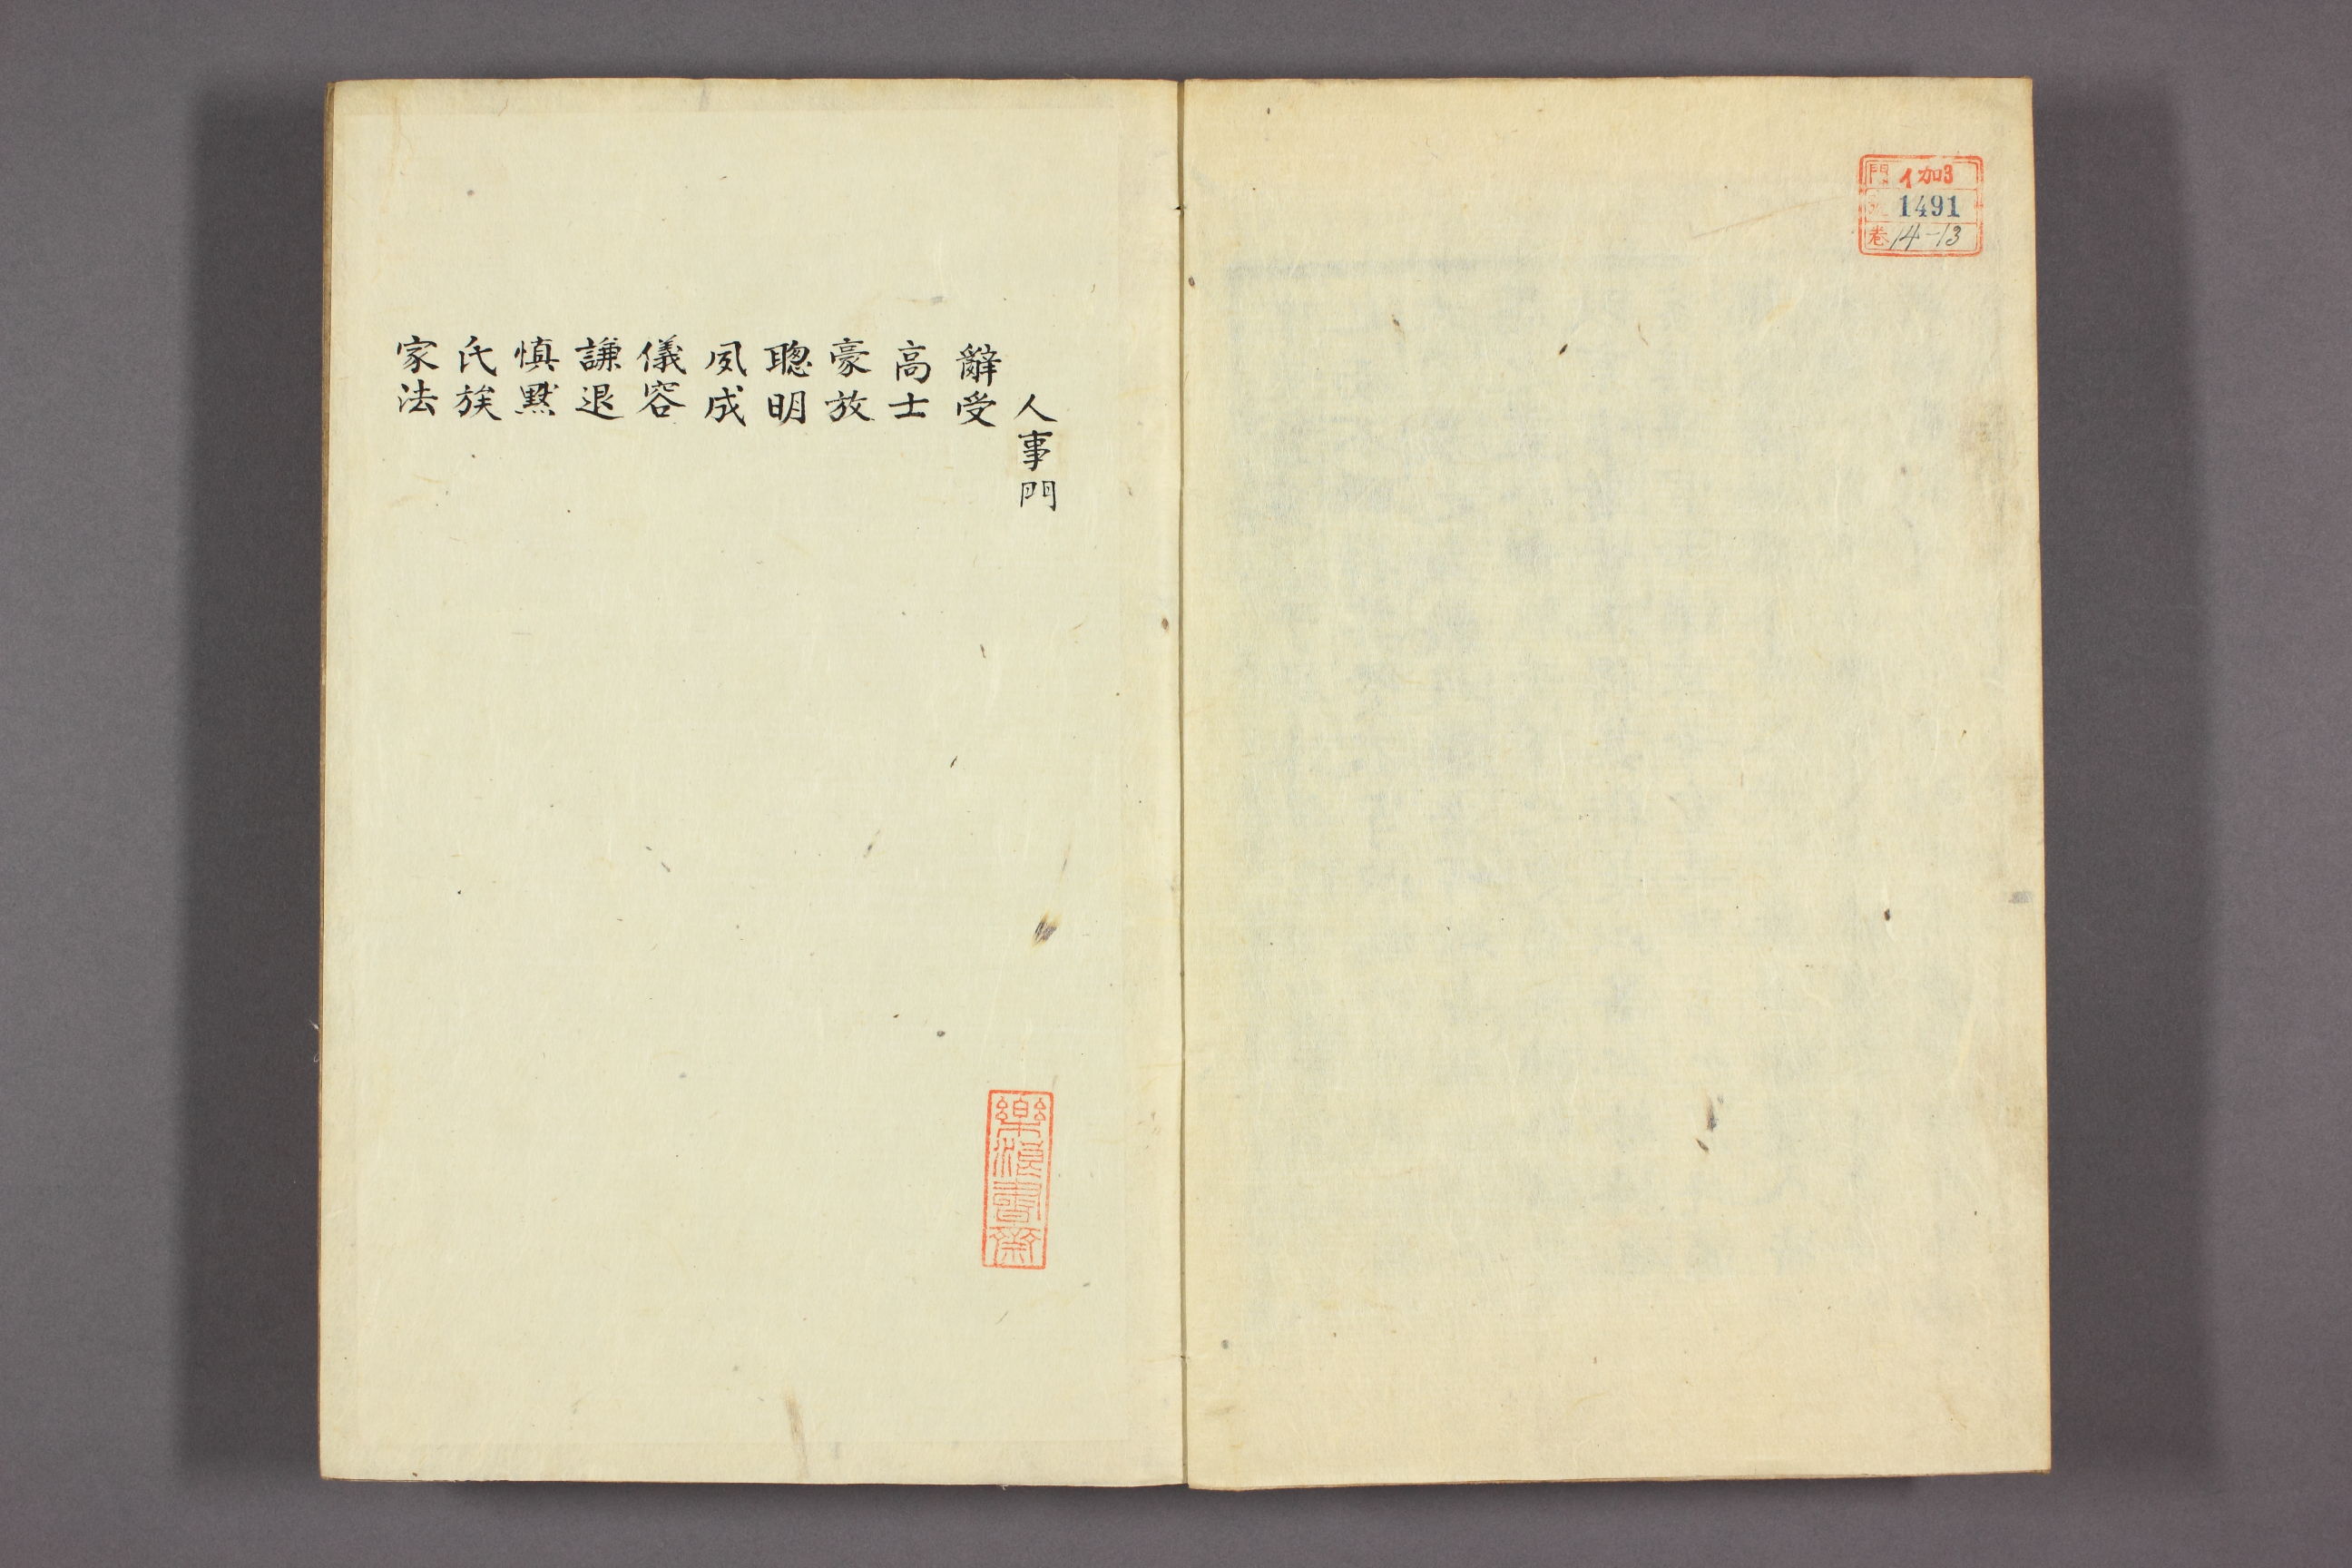 門 イ加3
號 1491
巻 14-13
人事門
辭受
高士
豪放
聰明
夙成
儀容
謙退
慎默
氏族
家法
樂浪書齋